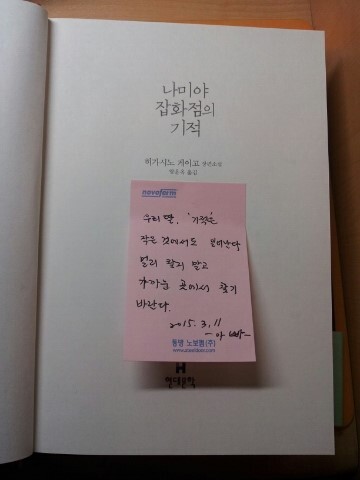 나미야
잡화점의
기적
히가시노 게이고 장편소설
양윤옥 옮김
novoform
우리 딸, '기적'은
작은 것에서도 일어난다
멀리 찾지 말고
가까운 곳에서 찾기
바란다.
2015. 3. 11
- 아빠 -
동명 노보폼(주)
현대문학